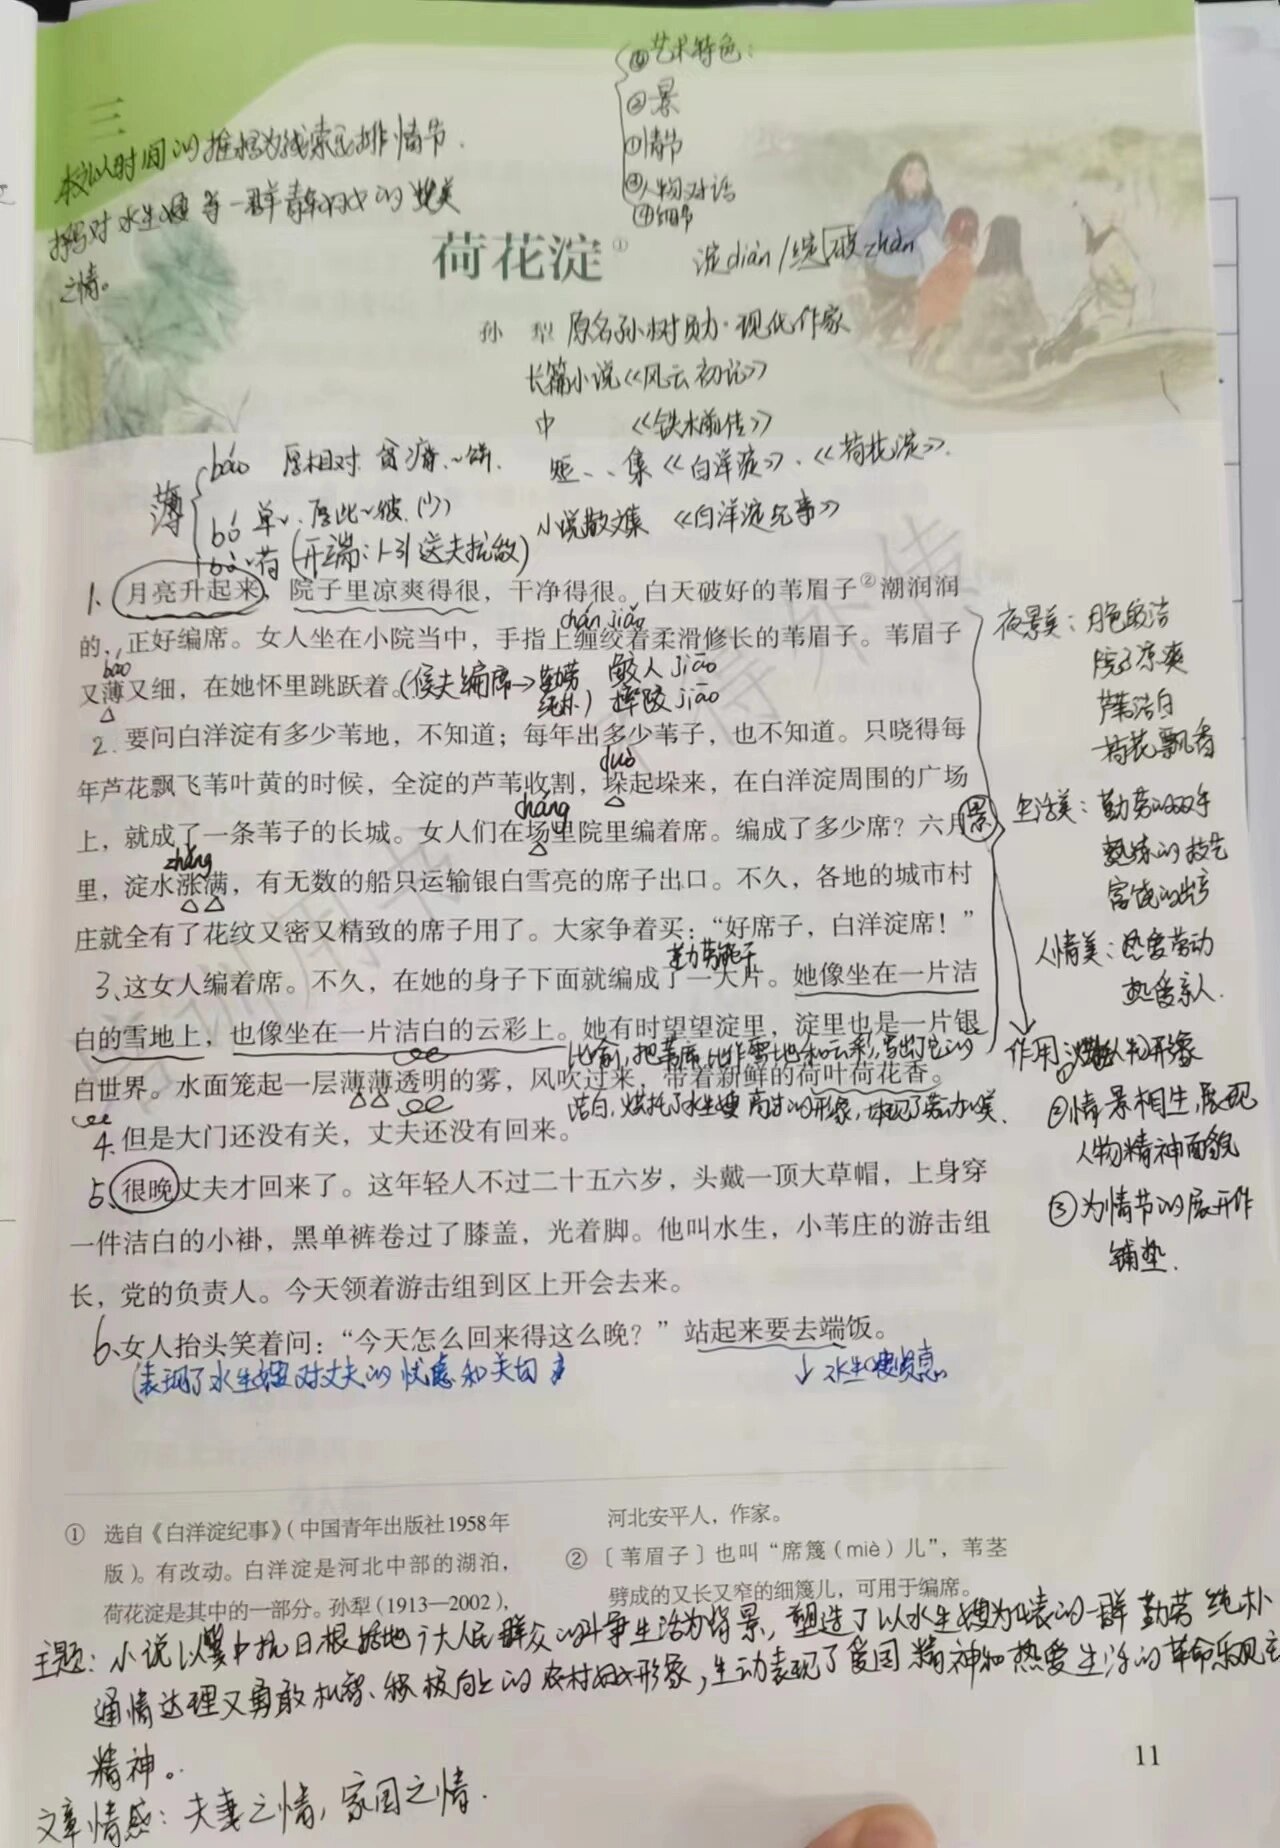 三
本文以时间的推移为线索安排情节.
抒写对水生嫂等一群青年妇女的赞美
之情。
⑤艺术特色:
②景
①情节
③人物对话
④细节
荷花淀①
淀diàn/绽 破zhàn
孙 犁 原名孙树勋·现代作家
长篇小说《风云初记》
中 《铁木前传》
短、、集《白洋淀》、《荷花淀》.
小说散文集 《白洋淀纪事》
薄
báo 厚相对. 贫瘠.~饼.
bó 单~.厚此~彼.(少)
bò ~荷 (开端:1-31送夫抗敌)
1、月亮升起来，院子里凉爽得很，干净得很。白天破好的苇眉子②潮润润
chán jiǎo
的，正好编席。女人坐在小院当中，手指上缠绞着柔滑修长的苇眉子。苇眉子
báo
又薄又细，在她怀里跳跃着。(候夫编席→勤劳 纯朴)
鲛人 jiāo
摔跤 jiāo
2.要问白洋淀有多少苇地，不知道；每年出多少苇子，也不知道。只晓得每
duò
年芦花飘飞苇叶黄的时候，全淀的芦苇收割，垛起垛来，在白洋淀周围的广场
cháng
上，就成了一条苇子的长城。女人们在场里院里编着席。编成了多少席？六月
zhǎng
里，淀水涨满，有无数的船只运输银白雪亮的席子出口。不久，各地的城市村
庄就全有了花纹又密又精致的席子用了。大家争着买：“好席子，白洋淀席！”
3、这女人编着席。不久，在她的身子下面就编成了一大片。她像坐在一片洁
白的雪地上，也像坐在一片洁白的云彩上。她有时望望淀里，淀里也是一片银
比喻,把苇席比作雪地和云彩,写出了它的
白世界。水面笼起一层薄薄透明的雾，风吹过来，带着新鲜的荷叶荷花香。
洁白,烘托了水生嫂高洁的形象,体现了劳动以美.
4、但是大门还没有关，丈夫还没有回来。
5、很晚丈夫才回来了。这年轻人不过二十五六岁，头戴一顶大草帽，上身穿
一件洁白的小褂，黑单裤卷过了膝盖，光着脚。他叫水生，小苇庄的游击组
长，党的负责人。今天领着游击组到区上开会去来。
6、女人抬头笑着问：“今天怎么回来得这么晚？”站起来要去端饭。
(表现了水生嫂对丈夫的忧虑和关切
↓水生嫂贤惠
景
夜景美：月色皎洁
院子凉爽
芦苇洁白
荷花飘香
生活美：勤劳的双手
熟练的技艺
富饶的出产
人情美：热爱劳动
热爱亲人.
作用 ①烘托人物形象
②情景相生,展现
人物精神面貌
③为情节的展开作
铺垫.
① 选自《白洋淀纪事》（中国青年出版社1958年
版）。有改动。白洋淀是河北中部的湖泊，
荷花淀是其中的一部分。孙犁（1913—2002），
河北安平人，作家。
② 〔苇眉子〕也叫“席篾（miè）儿”，苇茎
劈成的又长又窄的细篾儿，可用于编席。
主题：小说以冀中抗日根据地广大人民群众的斗争生活为背景,塑造了以水生嫂为代表的一群勤劳纯朴
通情达理又勇敢机智、积极向上的农村妇女形象,生动表现了爱国精神和热爱生活的革命乐观主
精神。
文章情感：夫妻之情,家国之情.
11